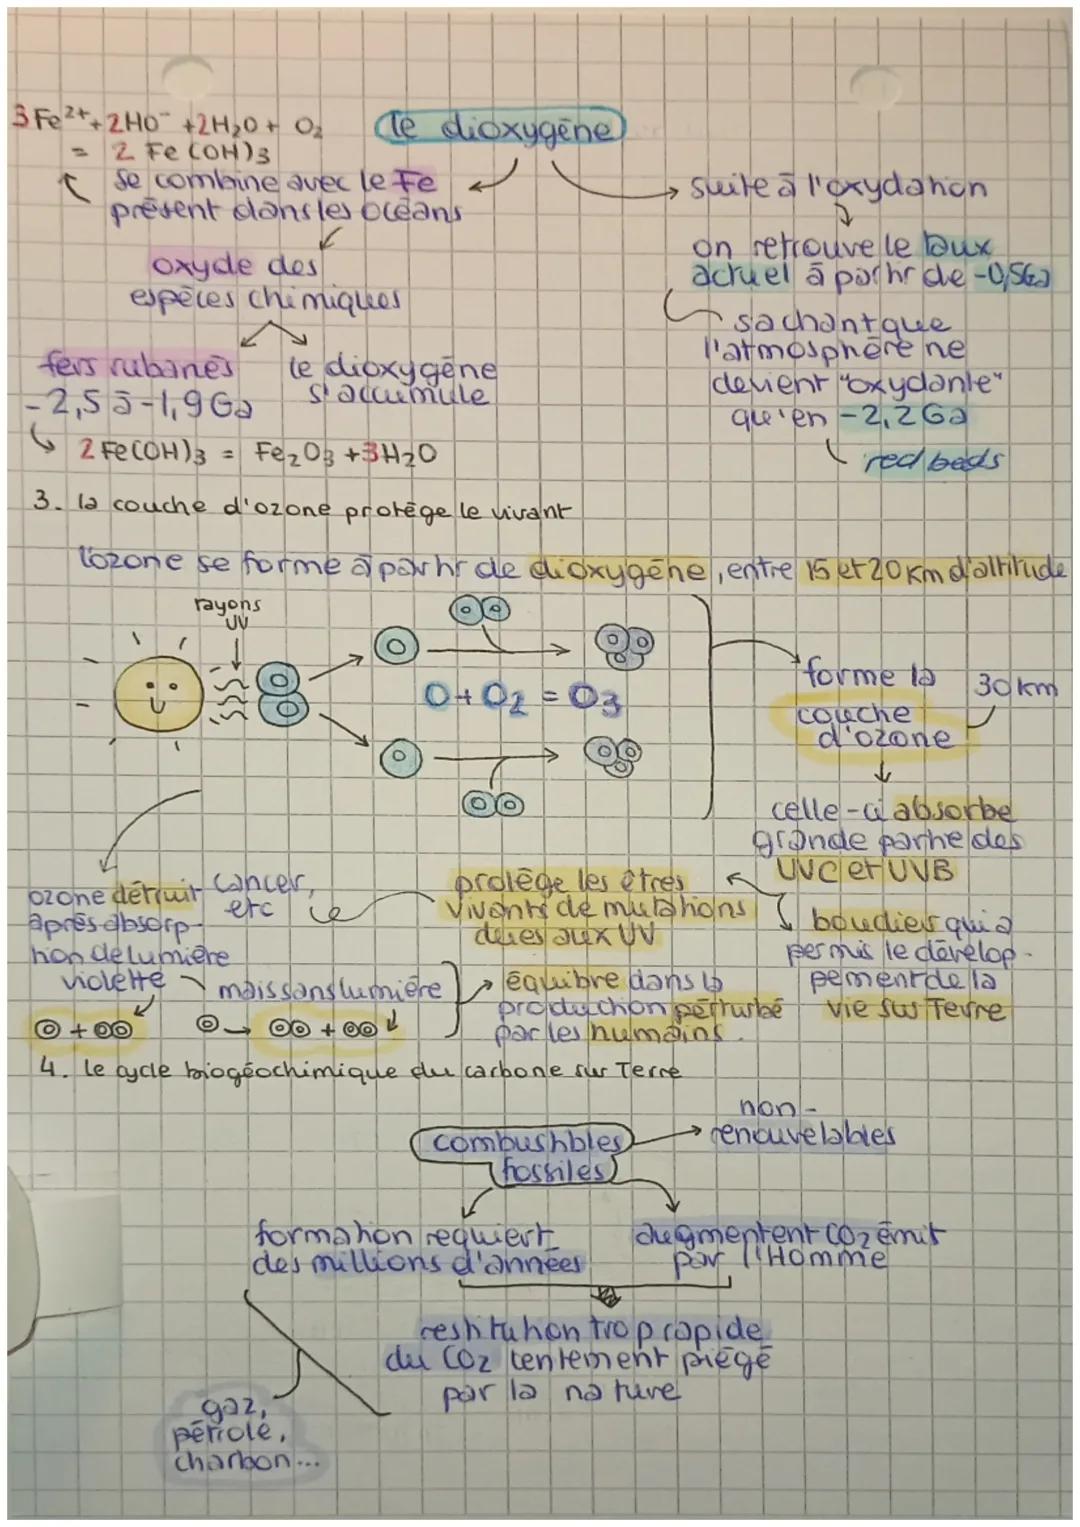 3Fe²⁺ + 2HO⁻ + 2H₂O + O₂
= 2 Fe(OH)₃
le dioxygène
se combine avec le Fe
présent dans les océans
suite à l'oxydation
on retrouve le taux
actuel à partir de -0,5Ga
oxyde des
espèces chimiques
sachant que
l'atmosphère ne
devient "oxydante"
qu'en -2,2Ga
red beds
fers rubanés
-2,5 à -1,9Ga
le dioxygène
s'accumule
2Fe(OH)₃ = Fe₂O₃ + 3H₂O
3. la couche d'ozone protège le vivant
l'ozone se forme à partir de dioxygène, entre 15 et 20 Km d'altitude
rayons
UV
O + O₂ = O₃
forme la
couche
d'ozone
30 km
celle-ci absorbe
grande partie des
UVC et UVB
protège les êtres
vivants de mutations
dues aux UV
cancer,
etc
bouclier qui a
permis le dévelop-
pement de la
vie sur Terre
ozone détruit
après absorp-
tion de lumière
violette
mais sans lumière
équibre dans la
production perturbé
par les humains.
4. le cycle biogéochimique du carbone sur Terre
combustibles
fossiles
non-
renouvelables
formation requiert
des millions d'années
augmentent CO₂ émit
par l'Homme
restitution trop rapide
du CO₂ lentement piégé
par la nature
gaz,
pétrole,
charbon...